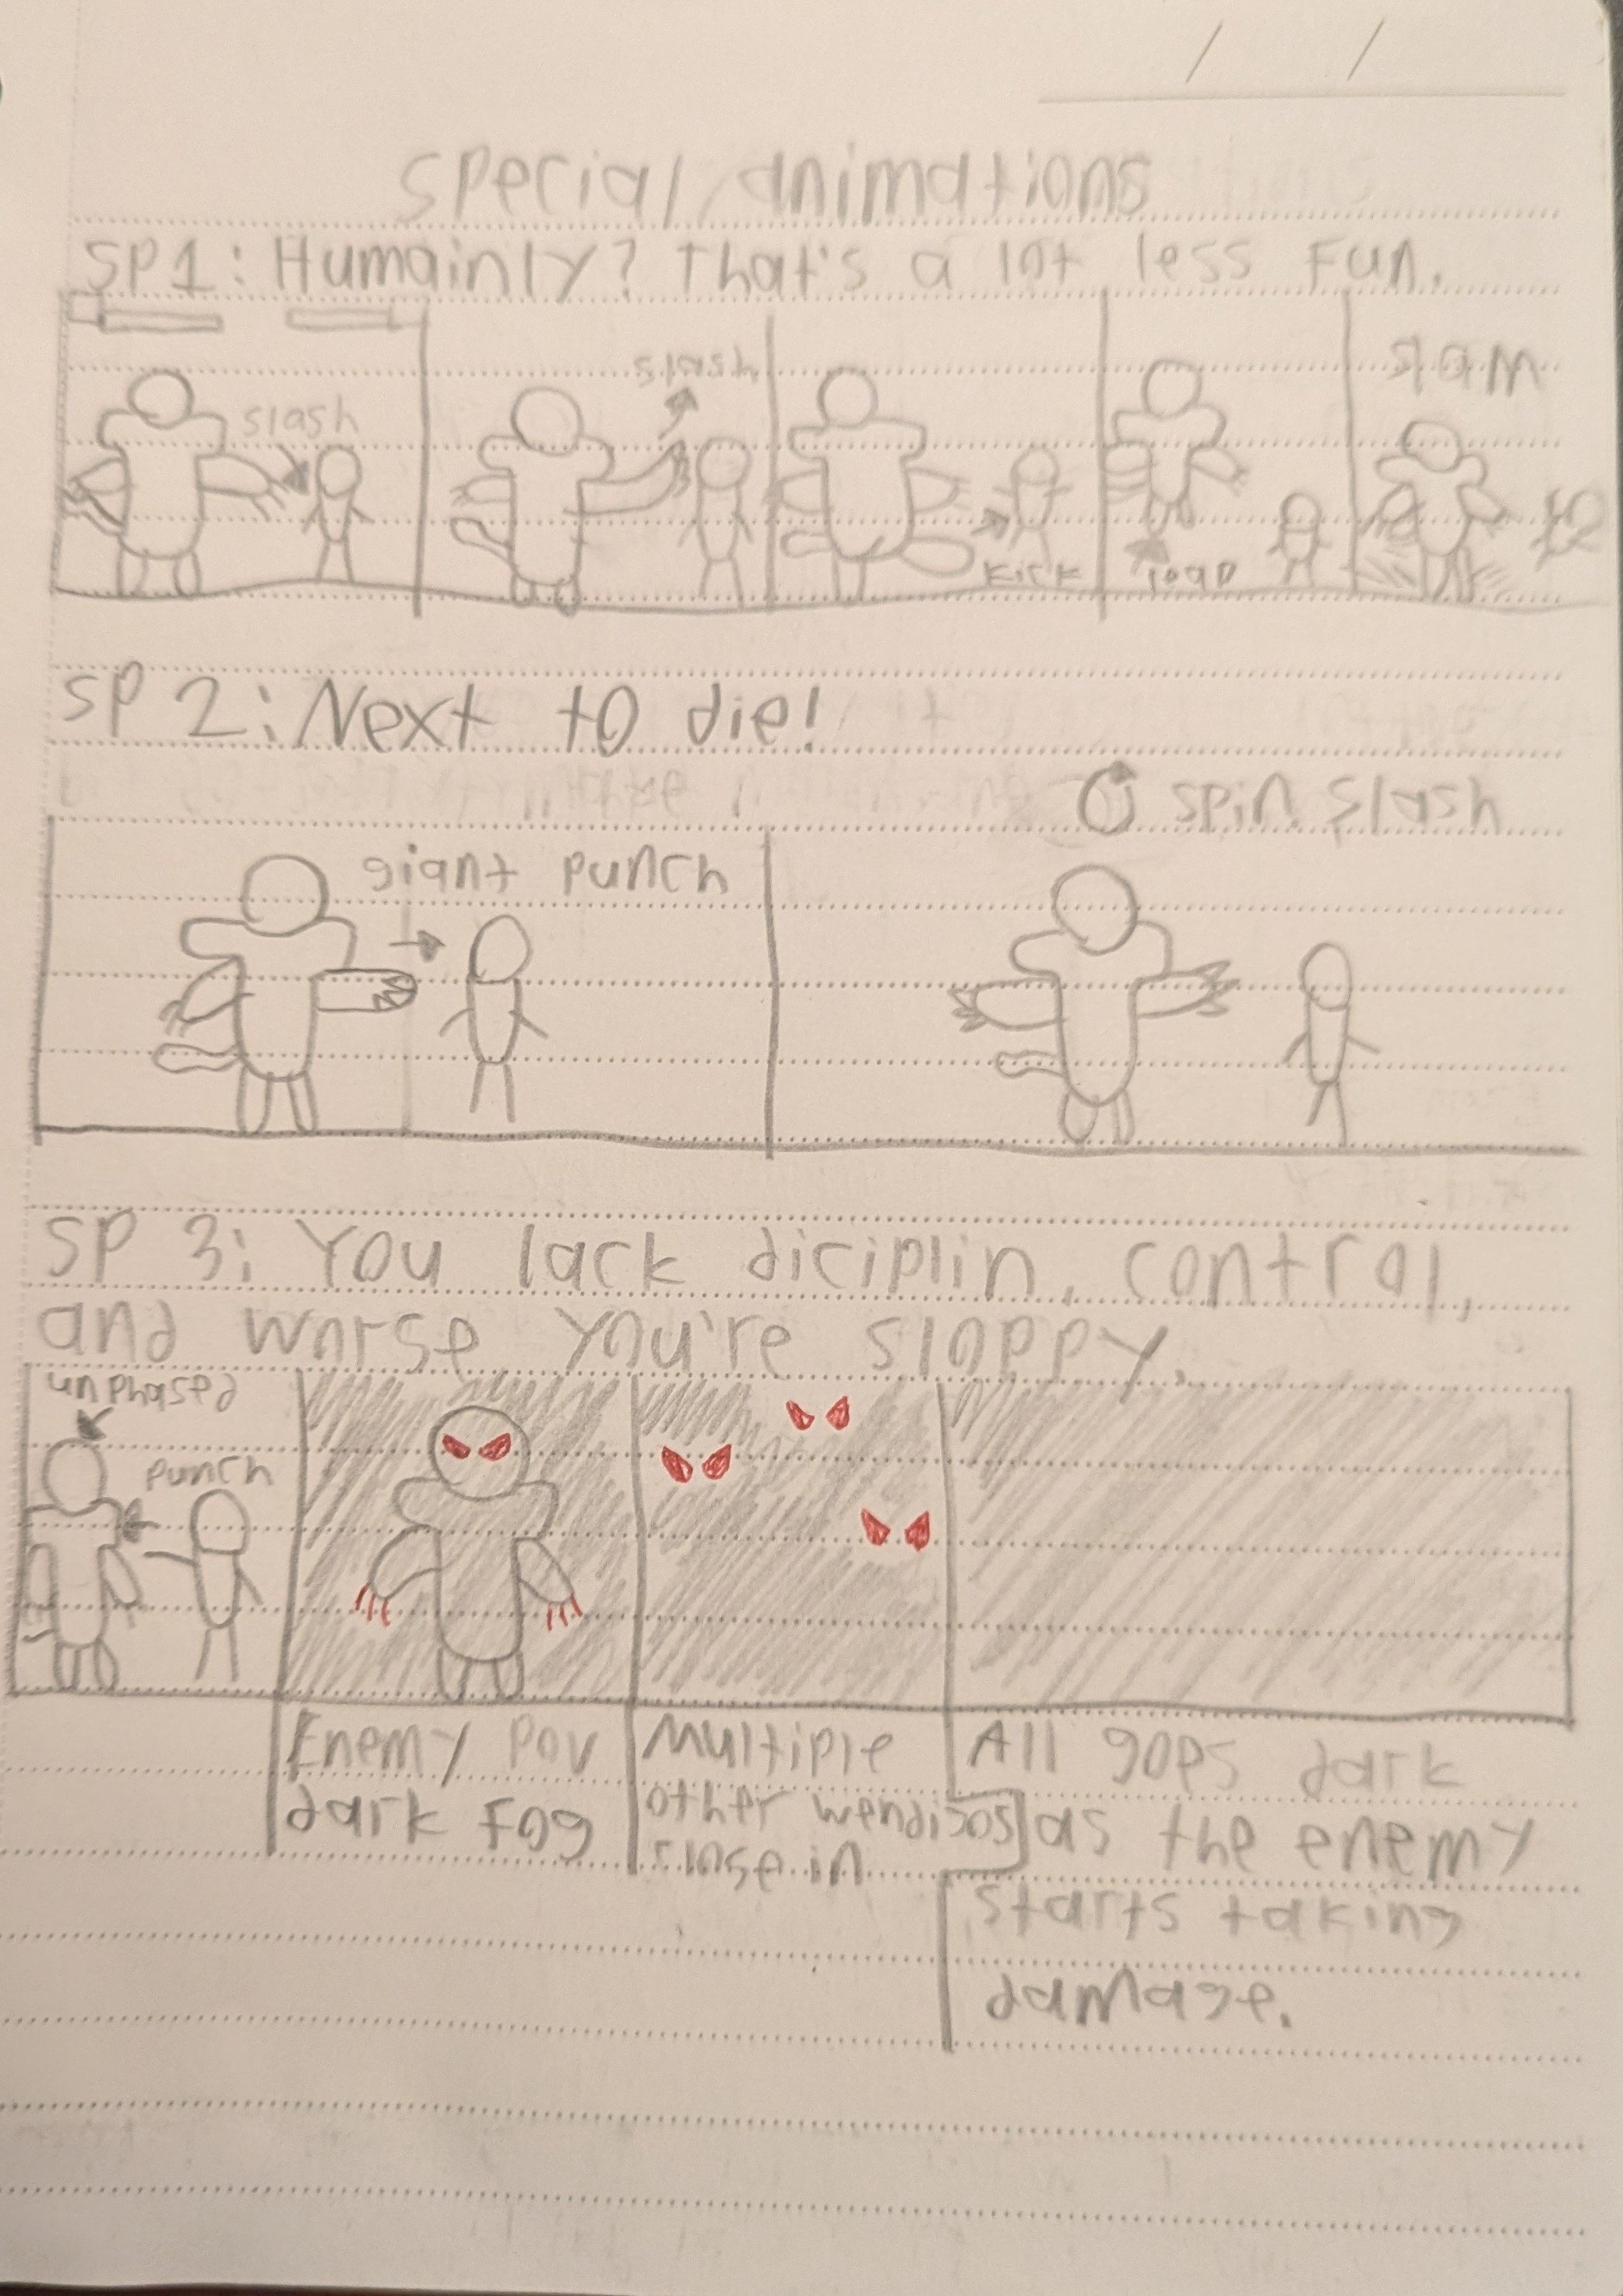 / /
Special animations
SP1: Humainly? That's a lot less fun.
slash
slash
kick
leap
slam
SP 2: Next to die!
spin slash
giant punch
SP 3: You lack diciplin, control,
and worse you're sloppy.
unphased
punch
Enemy POV
dark fog
Multiple
other wendigos
close in
All goes dark
as the enemy
starts taking
damage.